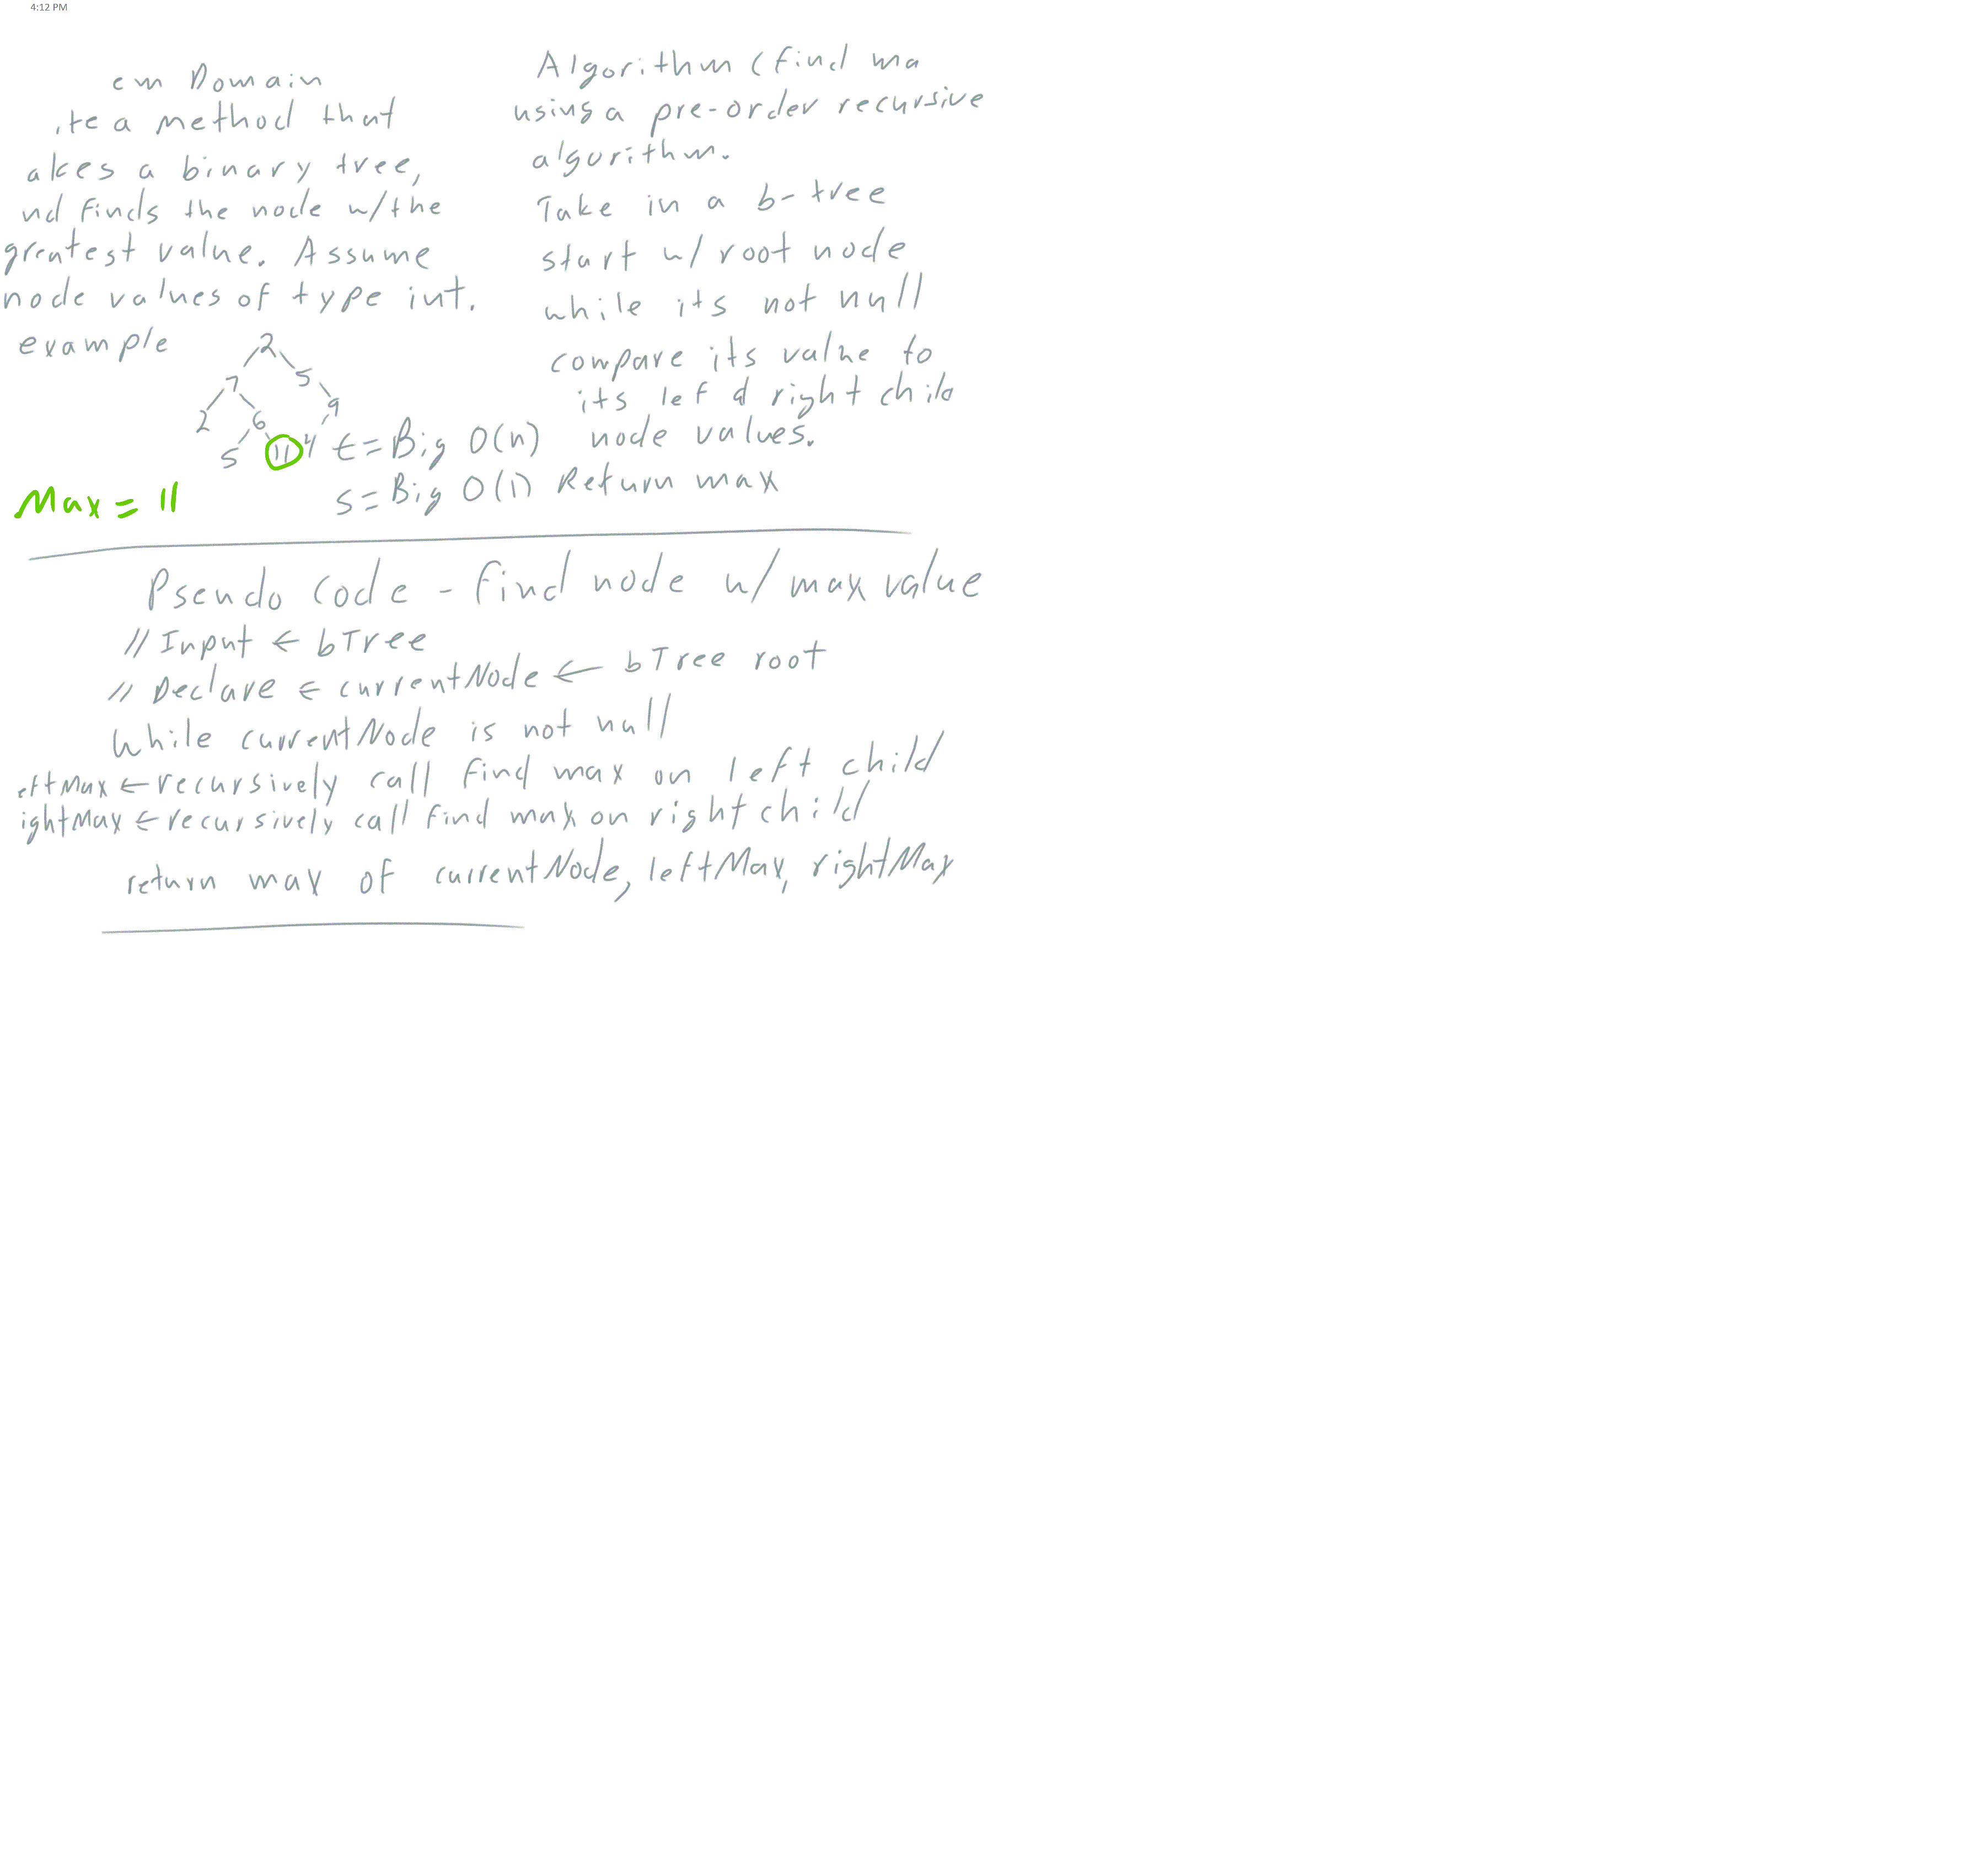 4:12 PM
em Domain
ite a method that
akes a binary tree,
nd finds the node w/the
greatest value. Assume
node values of type int.
example
2
7 5
2 6 9
5 11 4
Max = 11
t = Big O(n)
s = Big O(1)
Algorithm (find ma
using a pre-order recursive
algorithm.
Take in a b-tree
start w/ root node
while its not null
compare its value to
its lef d right child
node values.
Return max
Pseudo Code - find node w/ max value
// Input ← bTree
// Declare ← currentNode ← bTree root
While currentNode is not null
eftMax ← recursively call find max on left child
ightMax ← recursively call find max on right child
return max of currentNode, leftMax, rightMax